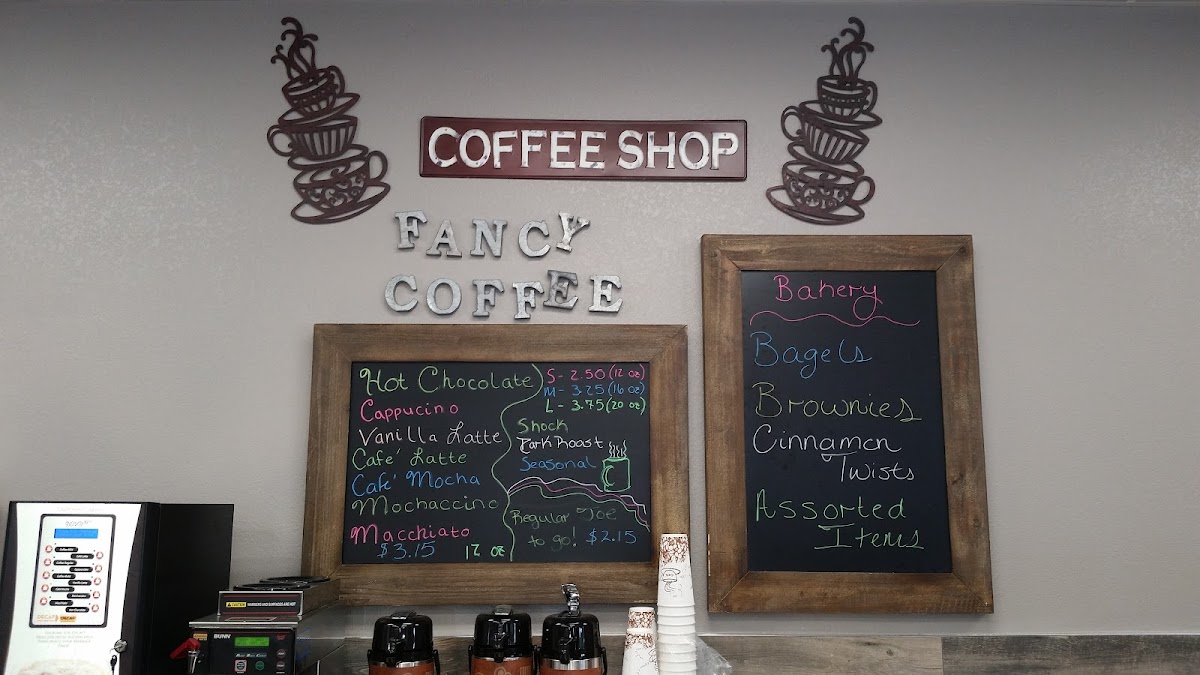 COFFEE SHOP
FANCY
COFFEE
Hot Chocolate
Cappucino
Vanilla Latte
Cafe' Latte
Cafe' Mocha
Mochaccino
Macchiato
$3.15 12 oz
S- 2.50 (12 oz)
M- 3.25 (16 oz)
L- 3.75 (20 oz)
Shock
Dark Roast
Seasonal
Regular Joe
to go! $2.15
Bakery
Bagels
Brownies
Cinnamon
Twists
Assorted
Items
CAUTION
BUNN